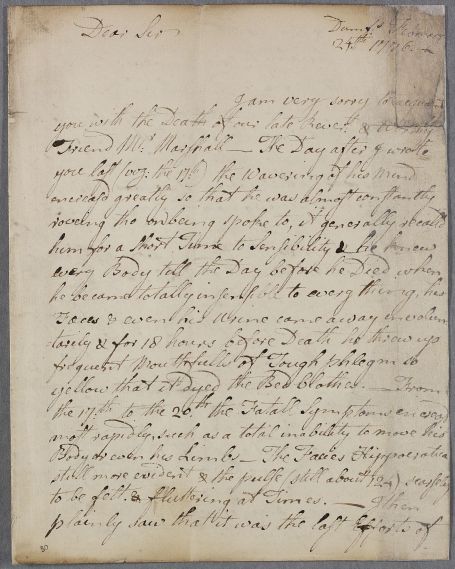 Dear Sir
Dumfs
24th 1776
I am very sorry to acquaint
you with the Death of our late Reverd & worthy
Friend Mr Marshall — The Day after I wrote
you last (viz: the 17th) the Wavering of his Mind
encreasd greatly so that he was almost constantly
roveing tho' on being spoke to, it generally recalld
him for a short Time to Sensibility & he knew
every Body till the Day before he Died when
he became totally insensible to every thing, his
Fæces & even his Urine came away involun
tarily & for 18 hours before Death he threw up
frequent Mouthfulls of Tough phlegm so
yellow that it dyed the Bed Clothes. — From
the 17th to the 20th the Fatall Symptoms encreasd
most rapidly, such as a total inability to move his
Body or even his Limbs — The Facies Hippocratica
still more evident & the pulse (still about 120) scarsely
to be felt & flutering at Times. — I then
plainly saw that it was the last Efforts of